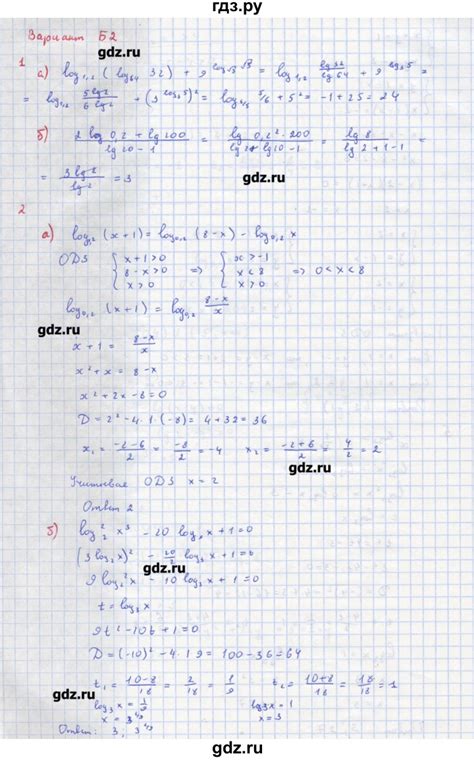 гдз.ру
Вариант Б2
gdz.ru
1 а) log₁,₂ (log₆₄ 32) + 9^{log√3 √5} = log₁,₂ lg32/lg64 + 9^{log₃5} =
= log₁,₂ 5lg2/6lg2 + (3^{log₃5})² = log₆/₅ 5/6 + 5² = -1 + 25 = 24
gdz.ru
б) 2 lg 0,2 + lg 200 / lg 20 - 1 = lg 0,2² · 200 / lg 2 + lg 10 - 1 = lg 8 / lg 2 + 1 - 1 =
= 3 lg 2 / lg 2 = 3
gdz.ru
2
а) log₀,₂ (x+1) = log₀,₂ (8-x) - log₀,₂ x
ОДЗ { x+1>0 { x>-1
8-x>0 => x<8 => 0<x<8
x>0 x>0
gdz.ru
log₀,₂ (x+1) = log₀,₂ 8-x/x
gdz.ru
x+1 = 8-x/x
x²+x = 8-x
x²+2x-8=0
gdz.ru
D = 2² - 4·1·(-8) = 4+32 = 36
x₁ = -2-6/2 = -8/2 = -4 x₂ = -2+6/2 = 4/2 = 2
gdz.ru
Учитывая ОДЗ x = 2
gdz.ru
Ответ 2
б) log₂² x³ - 20 log₄ x + 1 = 0
(3 log₂ x)² - 20/2 log₂ x + 1 = 0
gdz.ru
9 log₂² x - 10 log₂ x + 1 = 0
t = log₂ x
gdz.ru
9t² - 10t + 1 = 0
D = (-10)² - 4·1·9 = 100 - 36 = 64
t₁ = 10-8/18 = 2/18 = 1/9 t₂ = 10+8/18 = 18/18 = 1
gdz.ru
log₃ x = 1/9 log₃ x = 1
x = 3^{1/9} x = 3
gdz.ru
Ответ: 3; 3^{1/9}
gdz.ru